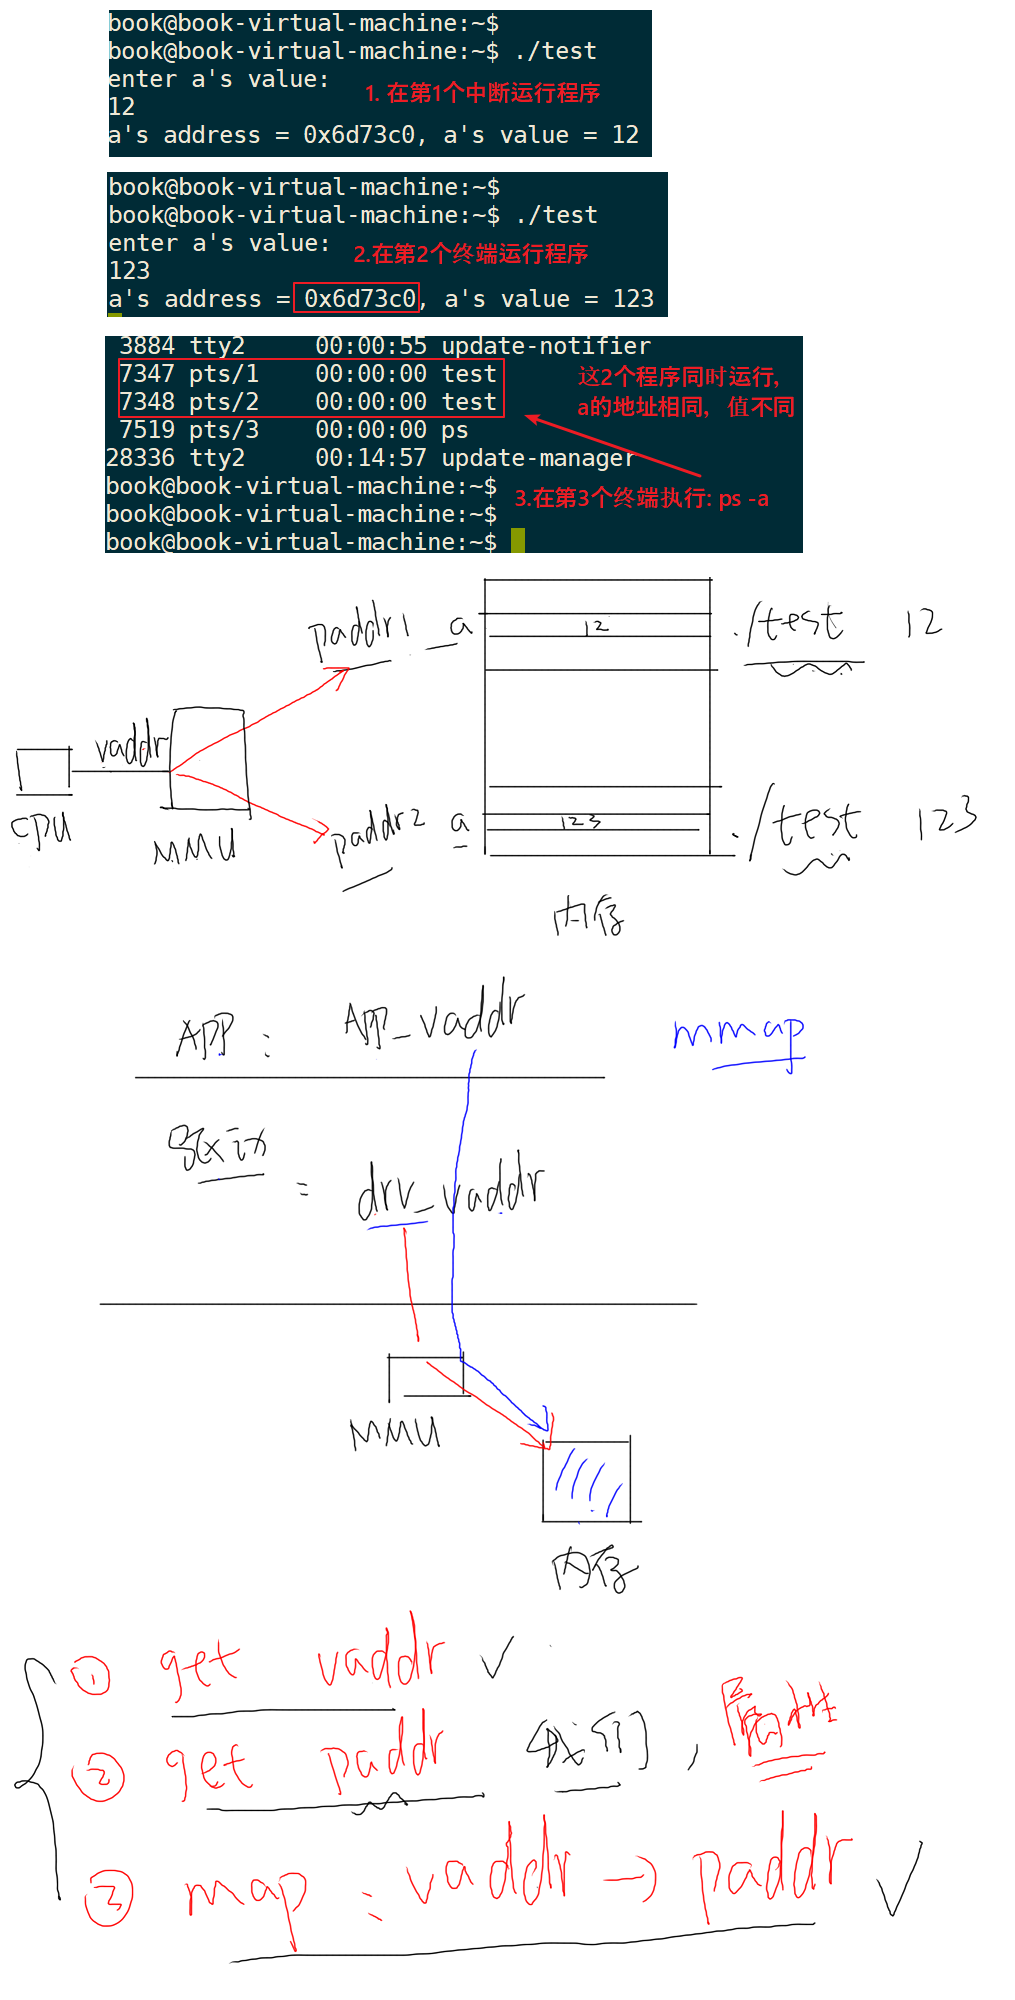 book@book-virtual-machine:~$
book@book-virtual-machine:~$ ./test
enter a's value:
1. 在第1个中断运行程序
12
a's address = 0x6d73c0, a's value = 12
book@book-virtual-machine:~$
book@book-virtual-machine:~$ ./test
enter a's value:
2.在第2个终端运行程序
123
a's address = 0x6d73c0, a's value = 123
3884 tty2 00:00:55 update-notifier
7347 pts/1 00:00:00 test
7348 pts/2 00:00:00 test
7519 pts/3 00:00:00 ps
28336 tty2 00:14:57 update-manager
book@book-virtual-machine:~$
book@book-virtual-machine:~$
book@book-virtual-machine:~$
这2个程序同时运行,
a的地址相同，值不同
3.在第3个终端执行: ps -a
paddr1 a 12 ./test 12
vaddr
CPU
MMU
paddr2 a 123 ./test 123
内存
APP: APP_vaddr mmap
驱动: drv_vaddr
MMU
内存
① get vaddr ✓
② get paddr 我们, 属性
③ map: vaddr → paddr ✓